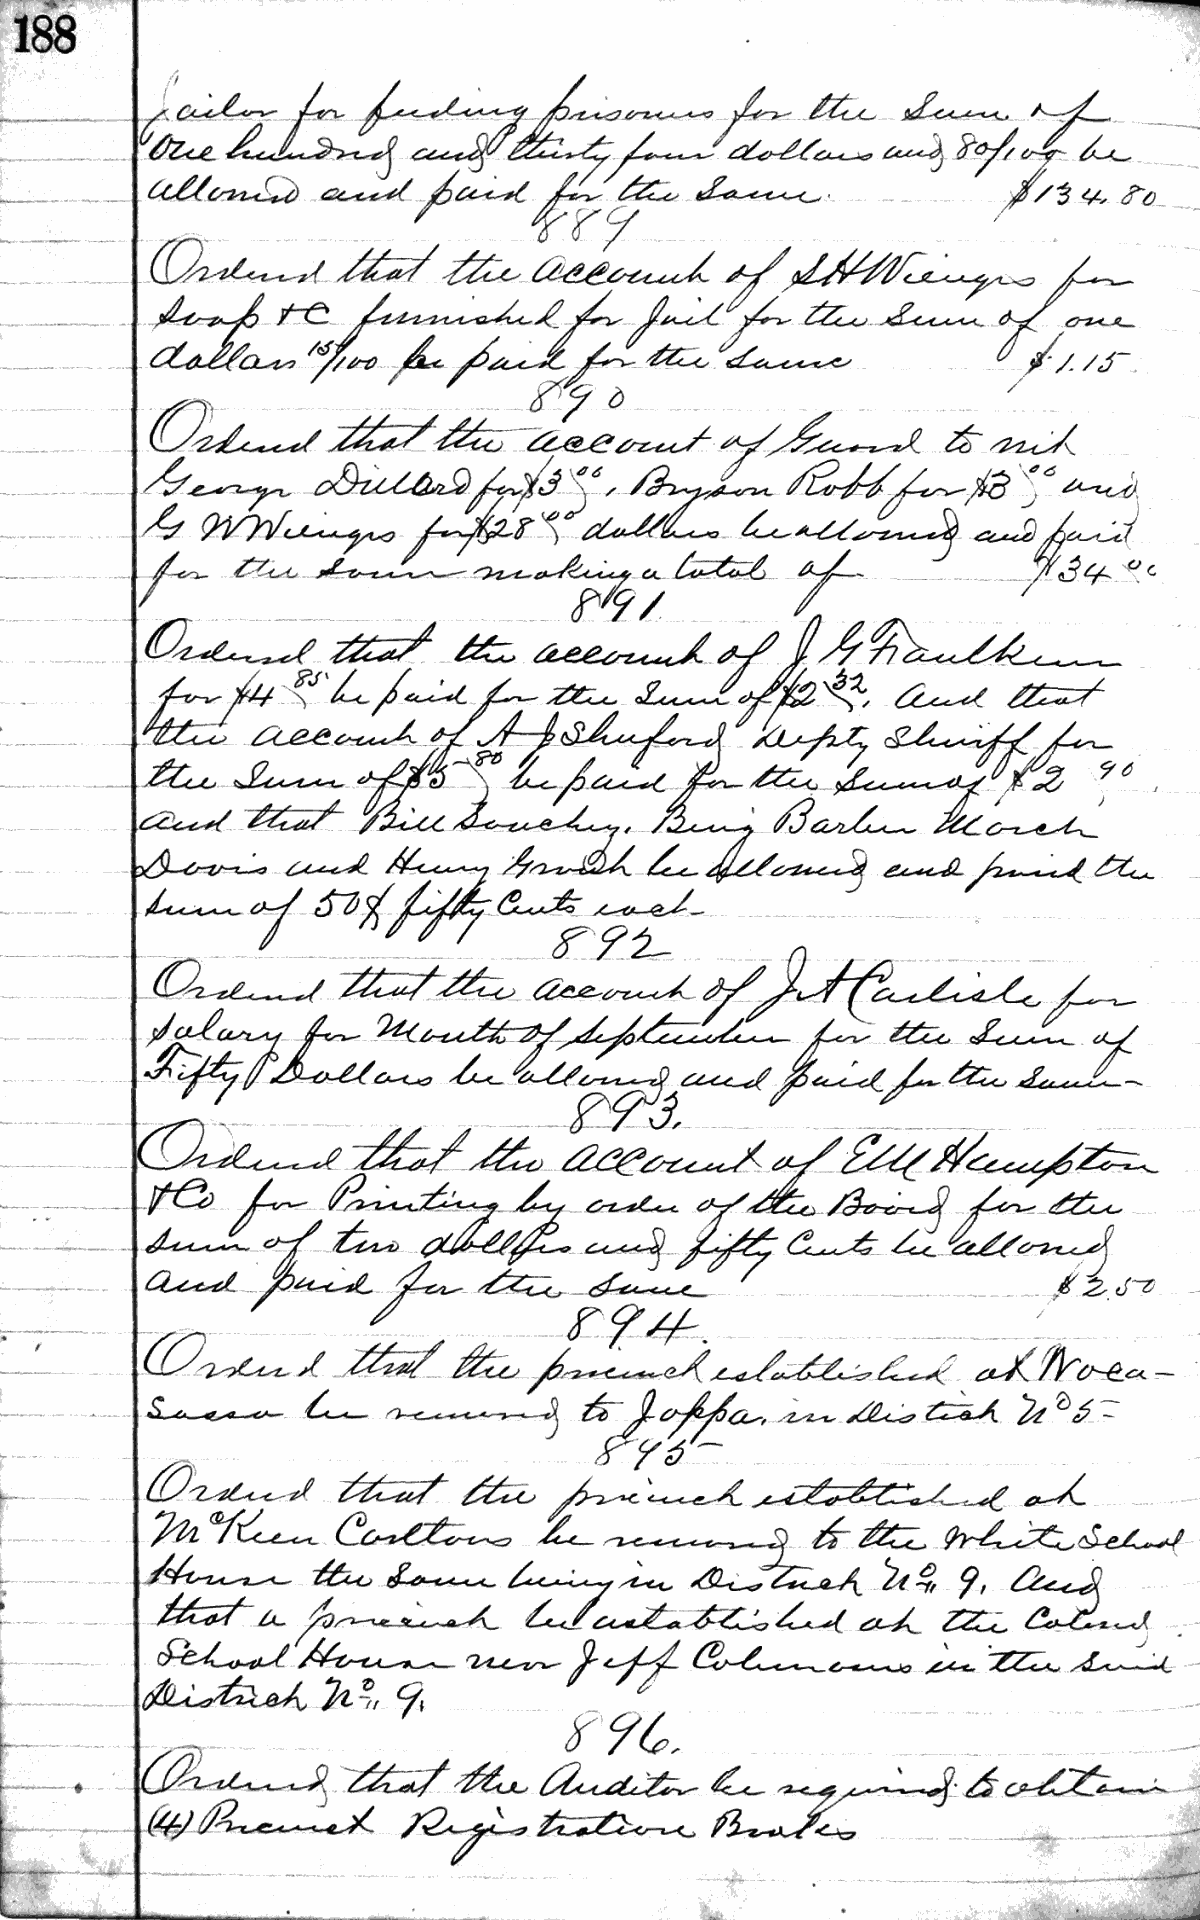 188
Jailor for feeding prisoners for the Sum of
One hundred and thirty four dollars and 80/100 be
allowed and paid for the Same. $134.80
889
Ordered that the account of S H Wienges for
Soap &C furnished for Jail for the Sum of one
dollars 15/100 be paid for the Same $1.15
890
Ordered that the account of Guard to wit
George Dillard for $3 00, Bryson Robb for $3 00 and
G W Wienges for $28 00 dollars be allowed and paid
for the Same making a total of $34 00
891
Ordered that the account of J G Faulkner
for $4 85 be paid for the Sum of $2 32. And that
the account of A J Shuford Depty Sheriff for
the Sum of $5 80 be paid for the Sum of $2 90
and that Bill Barber March
Davis and Henry be allowed and paid the
Sum of 50¢ fifty Cents each
892
Ordered that the account of J A Carlisle for
Salary for Month of September for the Sum of
Fifty Dollars be allowed and paid for the Same
893.
Ordered that the account of E M Hampton
&Co for Printing by order of the Board for the
Sum of two dollars and fifty Cents be allowed
and paid for the Same $2.50
894.
Ordered that the precinct established at Noca-
Sassa be removed to Joppa. in District No 5-
895
Ordered that the precinct established at
McKeen Carltons be removed to the White School
House the Same being in District No 9. And
that a precinct be established at the Colored
School House near Jeff Colemans in the Said
District No 9.
896.
Ordered that the Auditor be required to obtain
(4) Precinct Registration Books